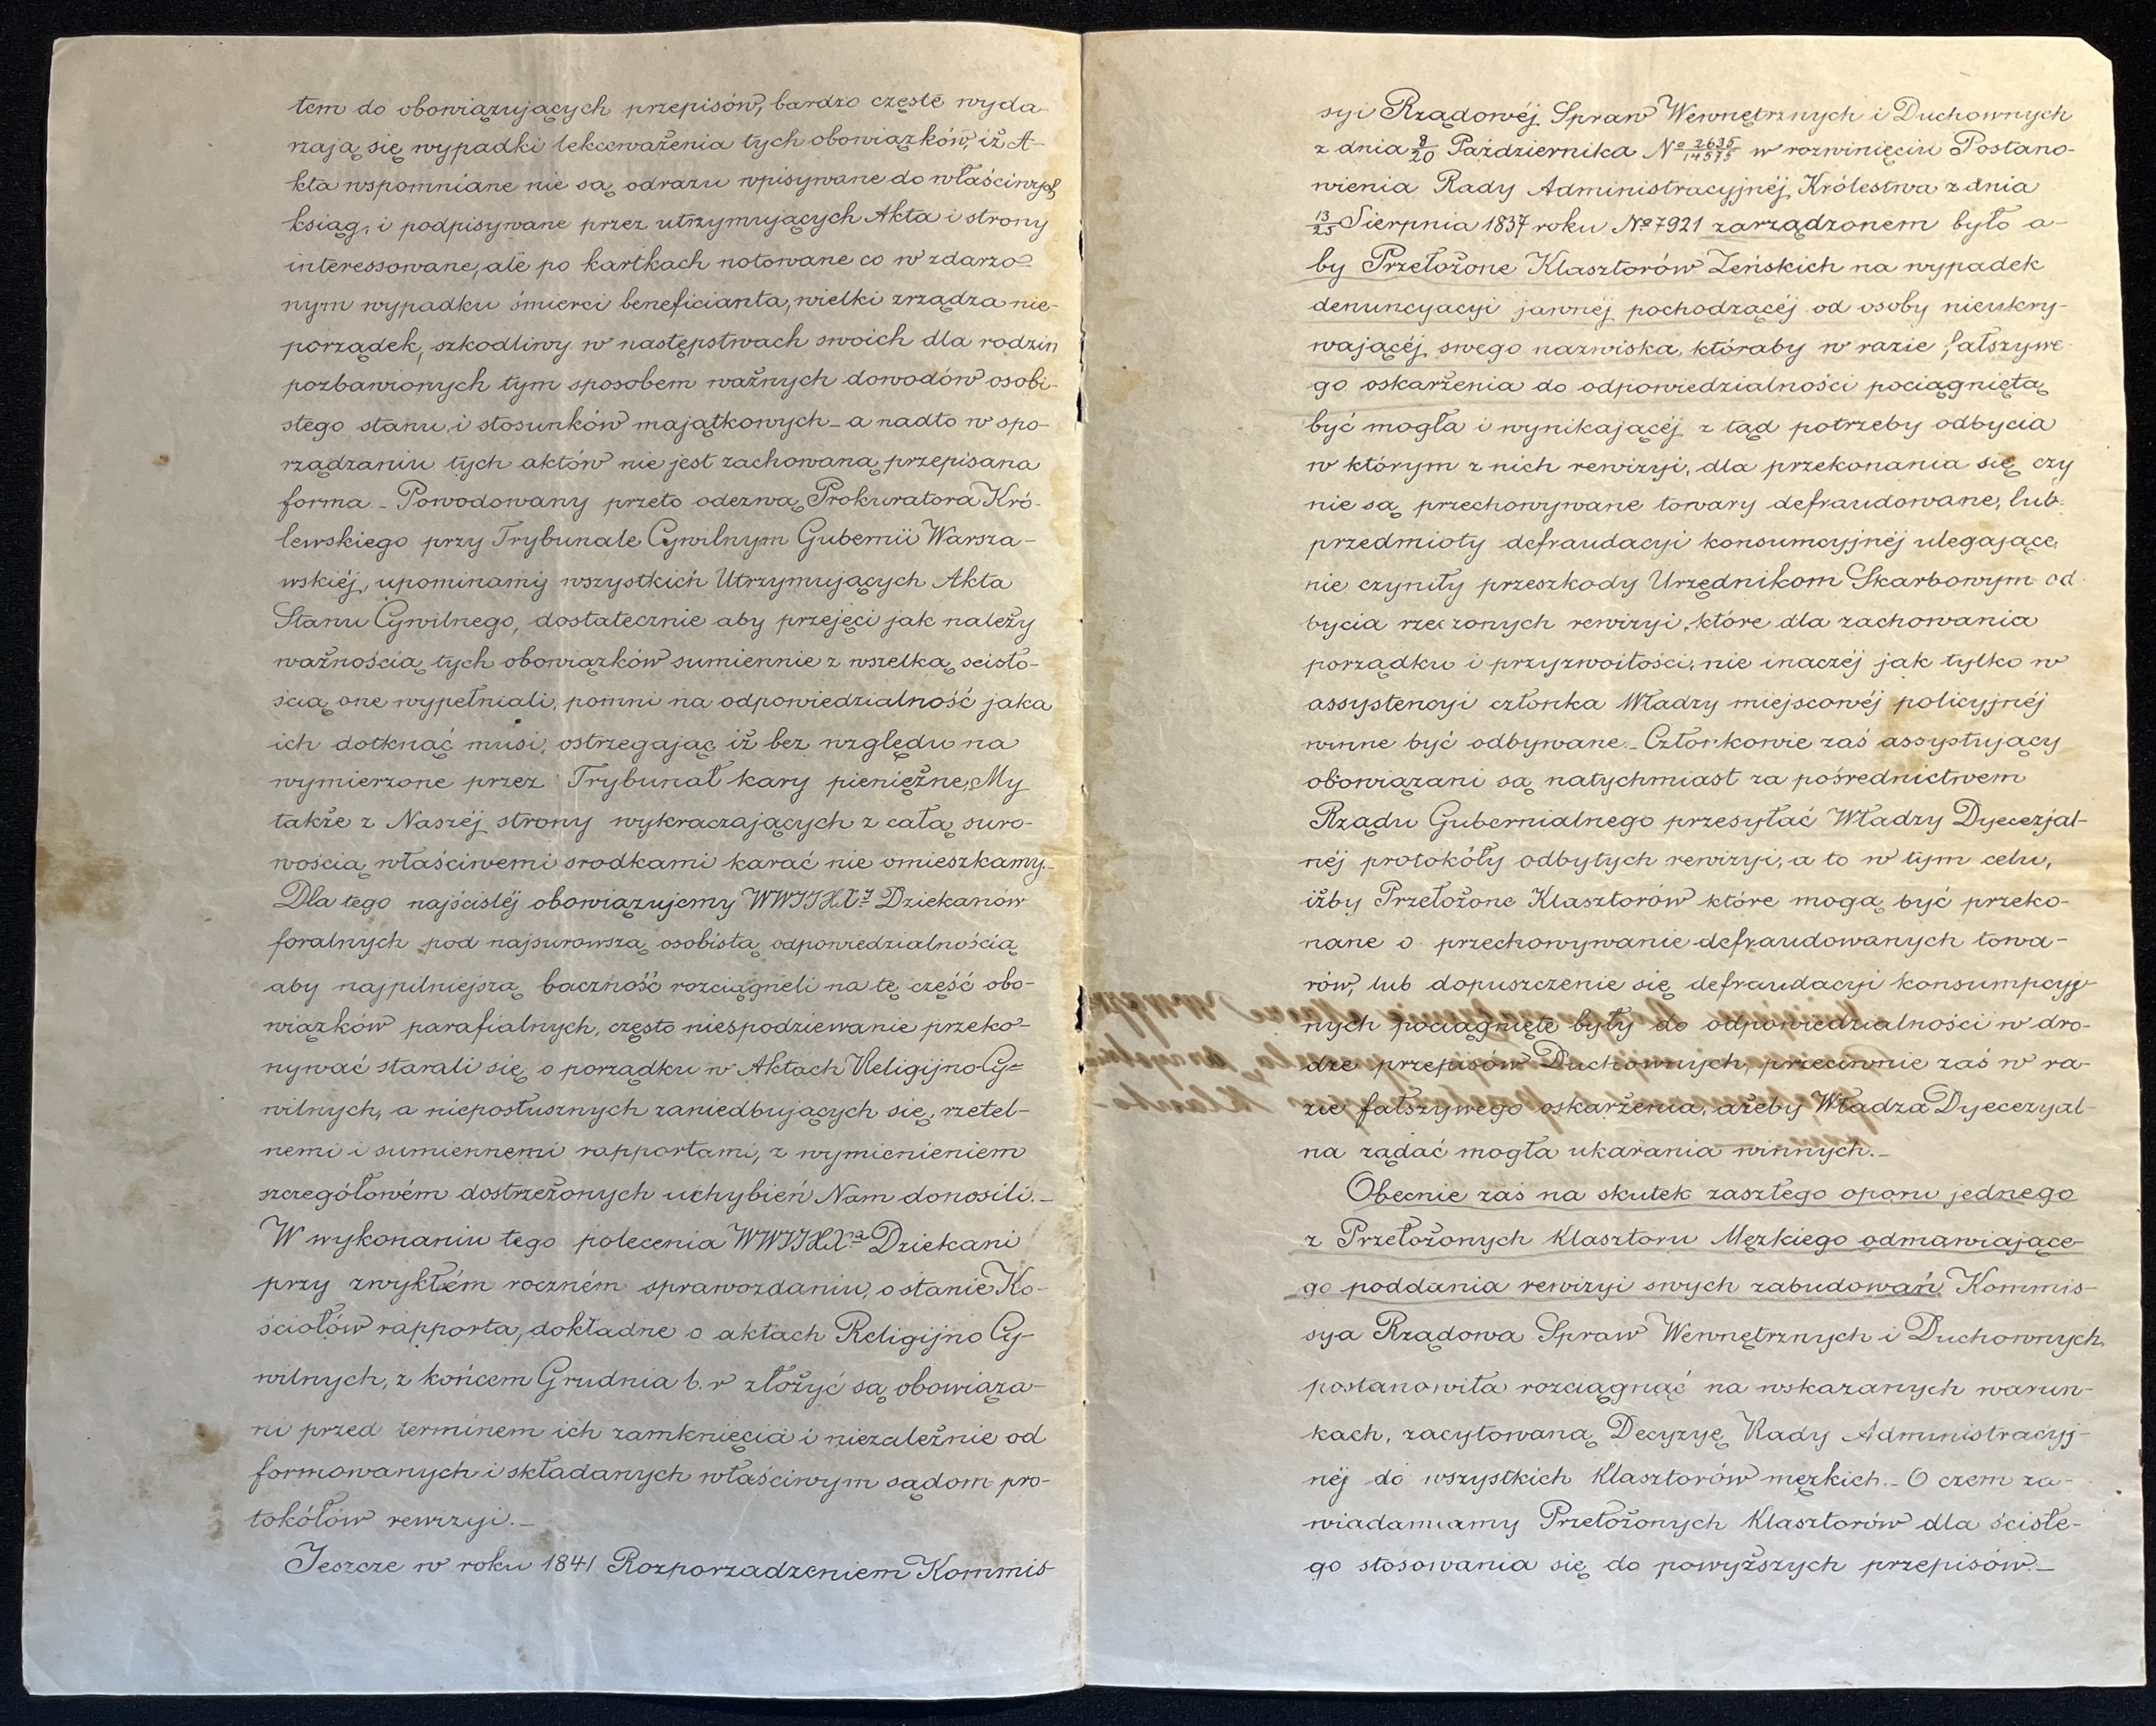 tem do obowiązujących przepisów, bardzo częste wyda
rzają się wypadki lekceważenia tych obowiązków, iż A-
kta wspomniane nie są odrazu wpisywane do właściwych
ksiąg, i podpisywane przez utrzymujących Akta i strony
interessowane, ale po kartkach notowane co w zdarzo-
nym wypadku śmierci beneficianta, wielki zrządza nie-
porządek, szkodliwy w następstwach swoich dla rodzin
pozbawionych tym sposobem ważnych dowodów osobi-
stego stanu i stosunków majątkowych – a nadto w spo-
rządzaniu tych aktów nie jest zachowaną przepisana
forma – Powodowany przeto odezwą Prokuratora Kró-
lewskiego przy Trybunale Cywilnym Gubernii Warsza-
wskiéj, upominamy wszystkich Utrzymujących Akta
Stanu Cywilnego, dostatecznie aby przejęci jak należy
ważnością tych obowiązków sumiennie z wszelką scisło-
ścią one wypełniali, pomni na odpowiedzialność jaka
ich dotknąć musi, ostrzegając iż bez względu na
wymierzone przez Trybunał kary pieniężne, My
także z Naszéj strony wykraczających z całą suro-
wością właściwemi srodkami karać nie omieszkamy. –
Dla tego najściśléj obowiązujemy WWIIXX<sup>y</sup> Dziekanów
foralnych pod najsurowszą osobistą odpowiedzialnością
aby najpilniejszą baczność rozciągneli na tę część obo-
wiązków parafialnych, często niespodziewanie przeko-
nywać starali się o porządku w Aktach Religijno Cy=
wilnych, a nieposłusznych zaniedbujących się, rzetel-
nemi i sumiennemi rapportami, z wymienieniem
szczegółowém dostrzeżonych uchybień Nam donosili. –
W wykonaniu tego polecenia WWIIXX<sup>a</sup> Dziekani
przy zwykłém roczném sprawozdaniu, o stanie Ko-
ściołów rapporta, dokładne o aktach Religijno Cy-
wilnych, z końcem Grudnia b. r złożyć są obowiąza-
ni przed terminem ich zamknięcia i niezależnie od
formowanych i składanych właściwym sądom pro-
tokółów rewizyi. –
Jeszcze w roku 1841 Rozporzadzeniem Kommis
syi Rządowéj Spraw Wewnętrznych i Duchownych
z dnia 8/20 Października № 2635/14575 w rozwinięciu Postano-
wienia Rady Administracyjnéj Królestwa z dnia
13/25 Sierpnia 1837 roku № 7921 zarządzonem było a-
by Przełożone Klasztorów Żeńskich na wypadek
denuncyacyi jawnéj pochodzącéj od osoby nieukry-
wającéj swego nazwiska, któraby w razie fałszywe-
go oskarżenia do odpowiedzialności pociągniętą
być mogła i wynikającéj z tąd potrzeby odbycia
w którym z nich rewizyi, dla przekonania się czy
nie są przechowywane towary defraudowane, lub
przedmioty defraudacyi konsumcyjnéj ulegające,
nie czyniły przeszkody Urzędnikom Skarbowym od
bycia rzeczonych rewizyi, które dla zachowania
porządku i przyzwoitości, nie inaczéj jak tylko w
assystencyi członka Władzy miejscowéj policyjnéj
winne być odbywane. – Członkowie zaś assystujący
obowiązani są natychmiast za pośrednictwem
Rządu Gubernialnego przesyłać Władzy Dyecezjal-
néj protokóły odbytych rewizyi, a to w tym celu,
iżby Przełożone Klasztorów które mogą być przeko-
nane o przechowywanie defraudowanych towa-
rów, lub dopuszczenie się defraudacyi konsumpcyj-
nych pociągnięte były do odpowiedzialności w dro-
dze przepisów Duchownych, przeciwnie zaś w ra-
zie fałszywego oskarżenia, ażeby Władza Dyecezyal-
na żądać mogła ukarania winnych. –
Obecnie zaś na skutek zaszłego oporu jednego
z Przełożonych Klasztoru Męzkiego odmawiające-
go poddania rewizyi swych zabudowań Kommis-
sya Rządowa Spraw Wewnętrznych i Duchownych,
postanowiła rozciągnąć na wskazanych warun-
kach, zacytowaną Decyzyę Rady Administracyj-
néj do wszystkich Klasztorów męzkich. – O czem za-
wiadamiamy Przełożonych Klasztorów dla ścisłe-
go stosowania się do powyższych przepisów. –